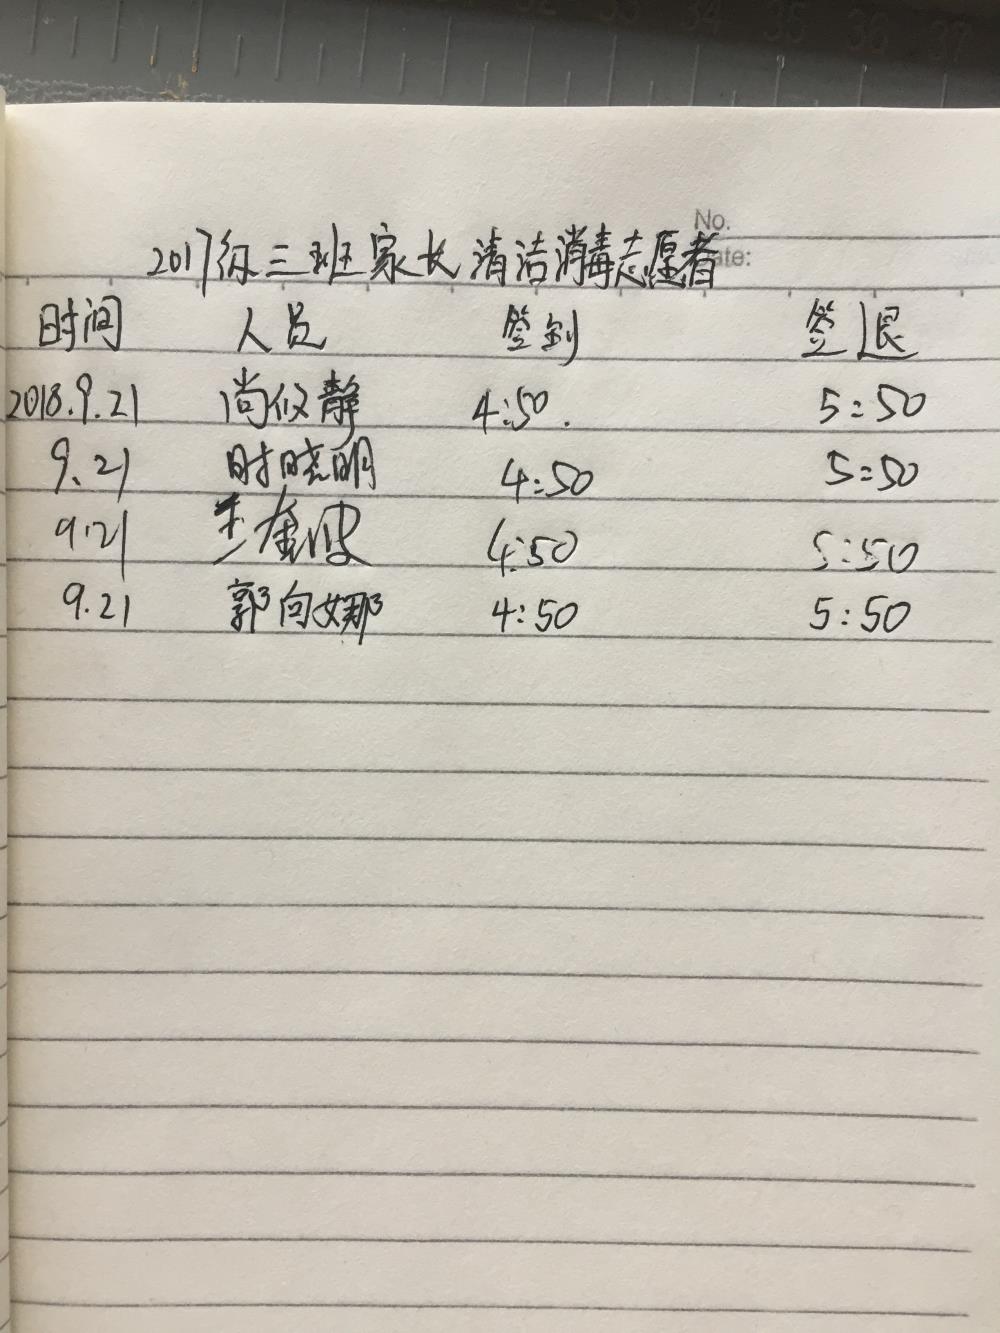 No.
Date:
2017级三班家长清洁消毒志愿者
时间 人员 签到 签退
2018.9.21 尚仪静 4:50. 5:50
9.21 时晓明 4:50 5:50
9.21 4:50 5:50
9.21 郭向娜 4:50 5:50